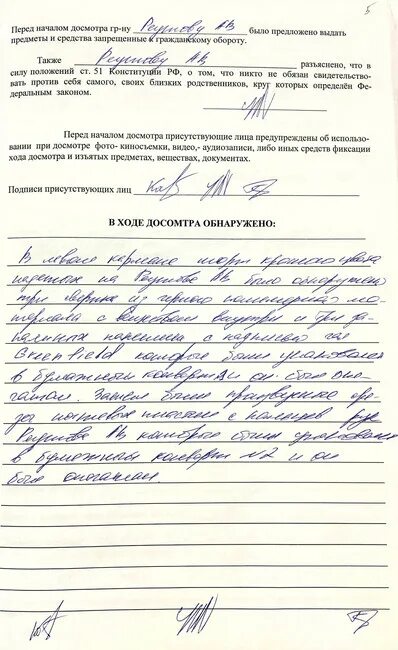 5
Перед началом досмотра гр-ну Реушову АВ было предложено выдать
предметы и средства запрещенные к гражданскому обороту.
Также Реушову АВ разъяснено, что в
силу положений ст. 51 Конституции РФ, о том, что никто не обязан свидетельство-
вать против себя самого, своих близких родственников, круг которых определён Фе-
деральным законом.
Перед началом досмотра присутствующие лица предупреждены об использова-
нии при досмотре фото- киносъемки, видео,- аудиозаписи, либо иных средств фиксации
хода досмотра и изъятых предметах, веществах, документах.
Подписи присутствующих лиц
В ХОДЕ ДОСОМТРА ОБНАРУЖЕНО:
В левом кармане шорт красного цвета
надетых на Реушова АВ было обнаружено
три свертка из черного полимерного ма-
териала с веществом внутри и три
пакетика с надписью чая
Greenfield которые были упакованы
в бумажный конверт и он был опе-
чатан. Затем были произведены сре-
зы ногтевых пластин с пальцев рук
Реушова АВ которые были упакованы
в бумажный конверт №2 и он
был опечатан.